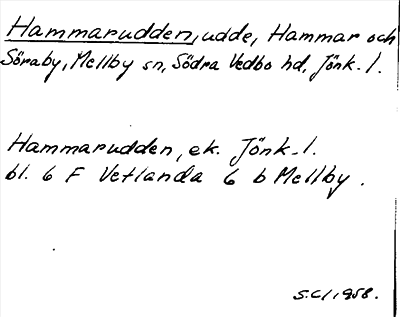 Hammarudden, udde, Hammar och
Söraby, Mellby sn, Södra Vedbo hd, Jönk. l.
Hammarudden, ek. Jönk. l.
bl. 6 F Vetlanda 6 b Mellby.
S.C/1958.